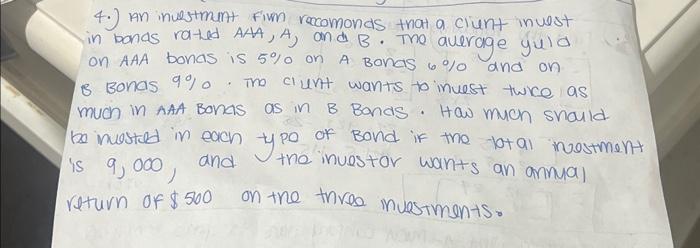 4.) An investment firm recomonds that a client invest
in bonds rated AAA, A, and B. The average yield
on AAA bonds is 5% on A Bonds 6% and on
B Bonds 9%. The client wants to invest twice as
much in AAA Bonds as in B Bonds. How much should
be invested in each type of Bond if the total investment
is 9,000, and the investor wants an annual
return of $500 on the three investments.